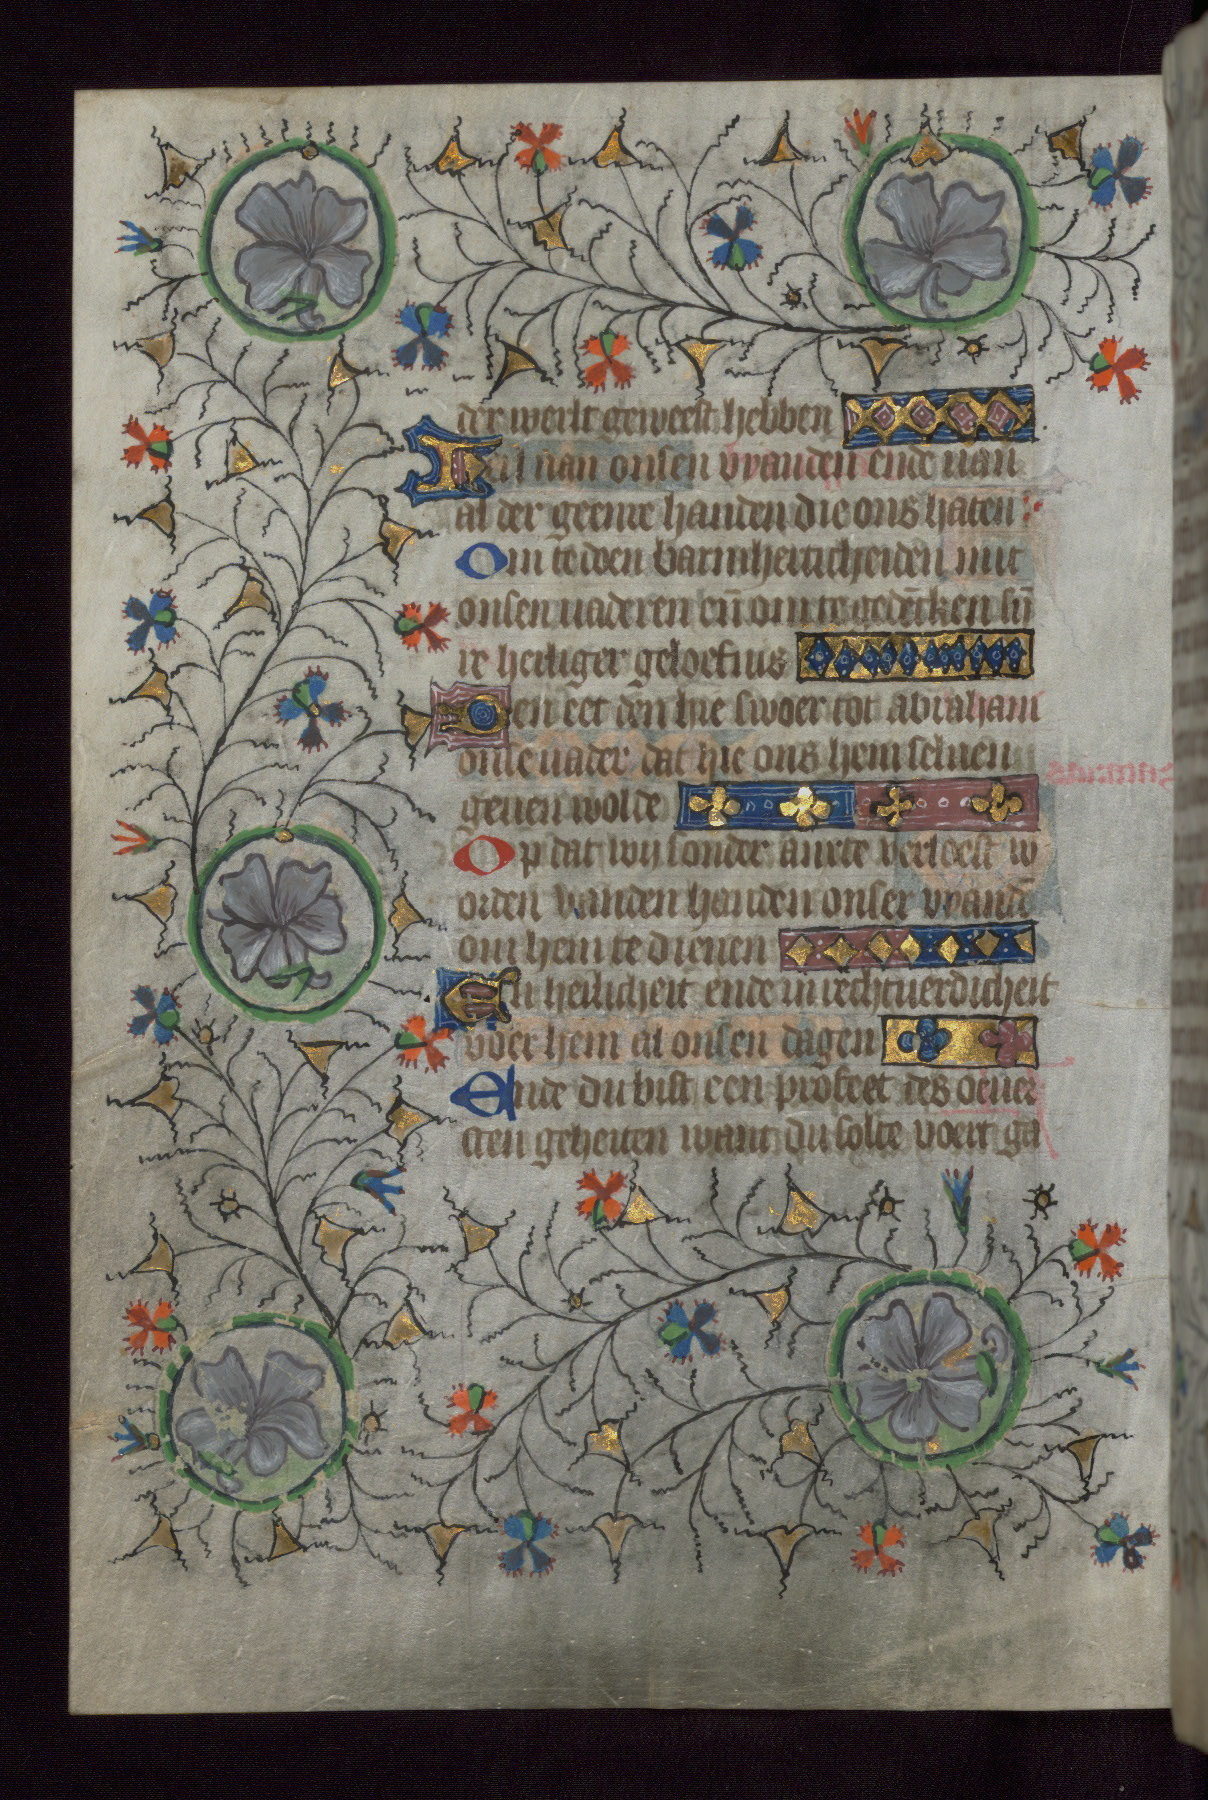 der werlt geweest hebben
Heil uan onsen vyanden ende uan
al der geenre handen die ons haten
Om te doen barmherticheiden mit
onsen uaderen eñ om te gedēcken sijn
re heiliger geloefnis
Den eet den hie swoer tot abraham
onse uader dat hie ons hem seluen
geuen wolde
Op dat wij sonder anxte verloest w
orden vanden handen onser vyandē
om hem te dienen
In heilicheit ende in rechtuerdicheit
voer hem al onsen dagen
Ende du bist een profeet des oeuer
sten geheiten want du solte voert ga